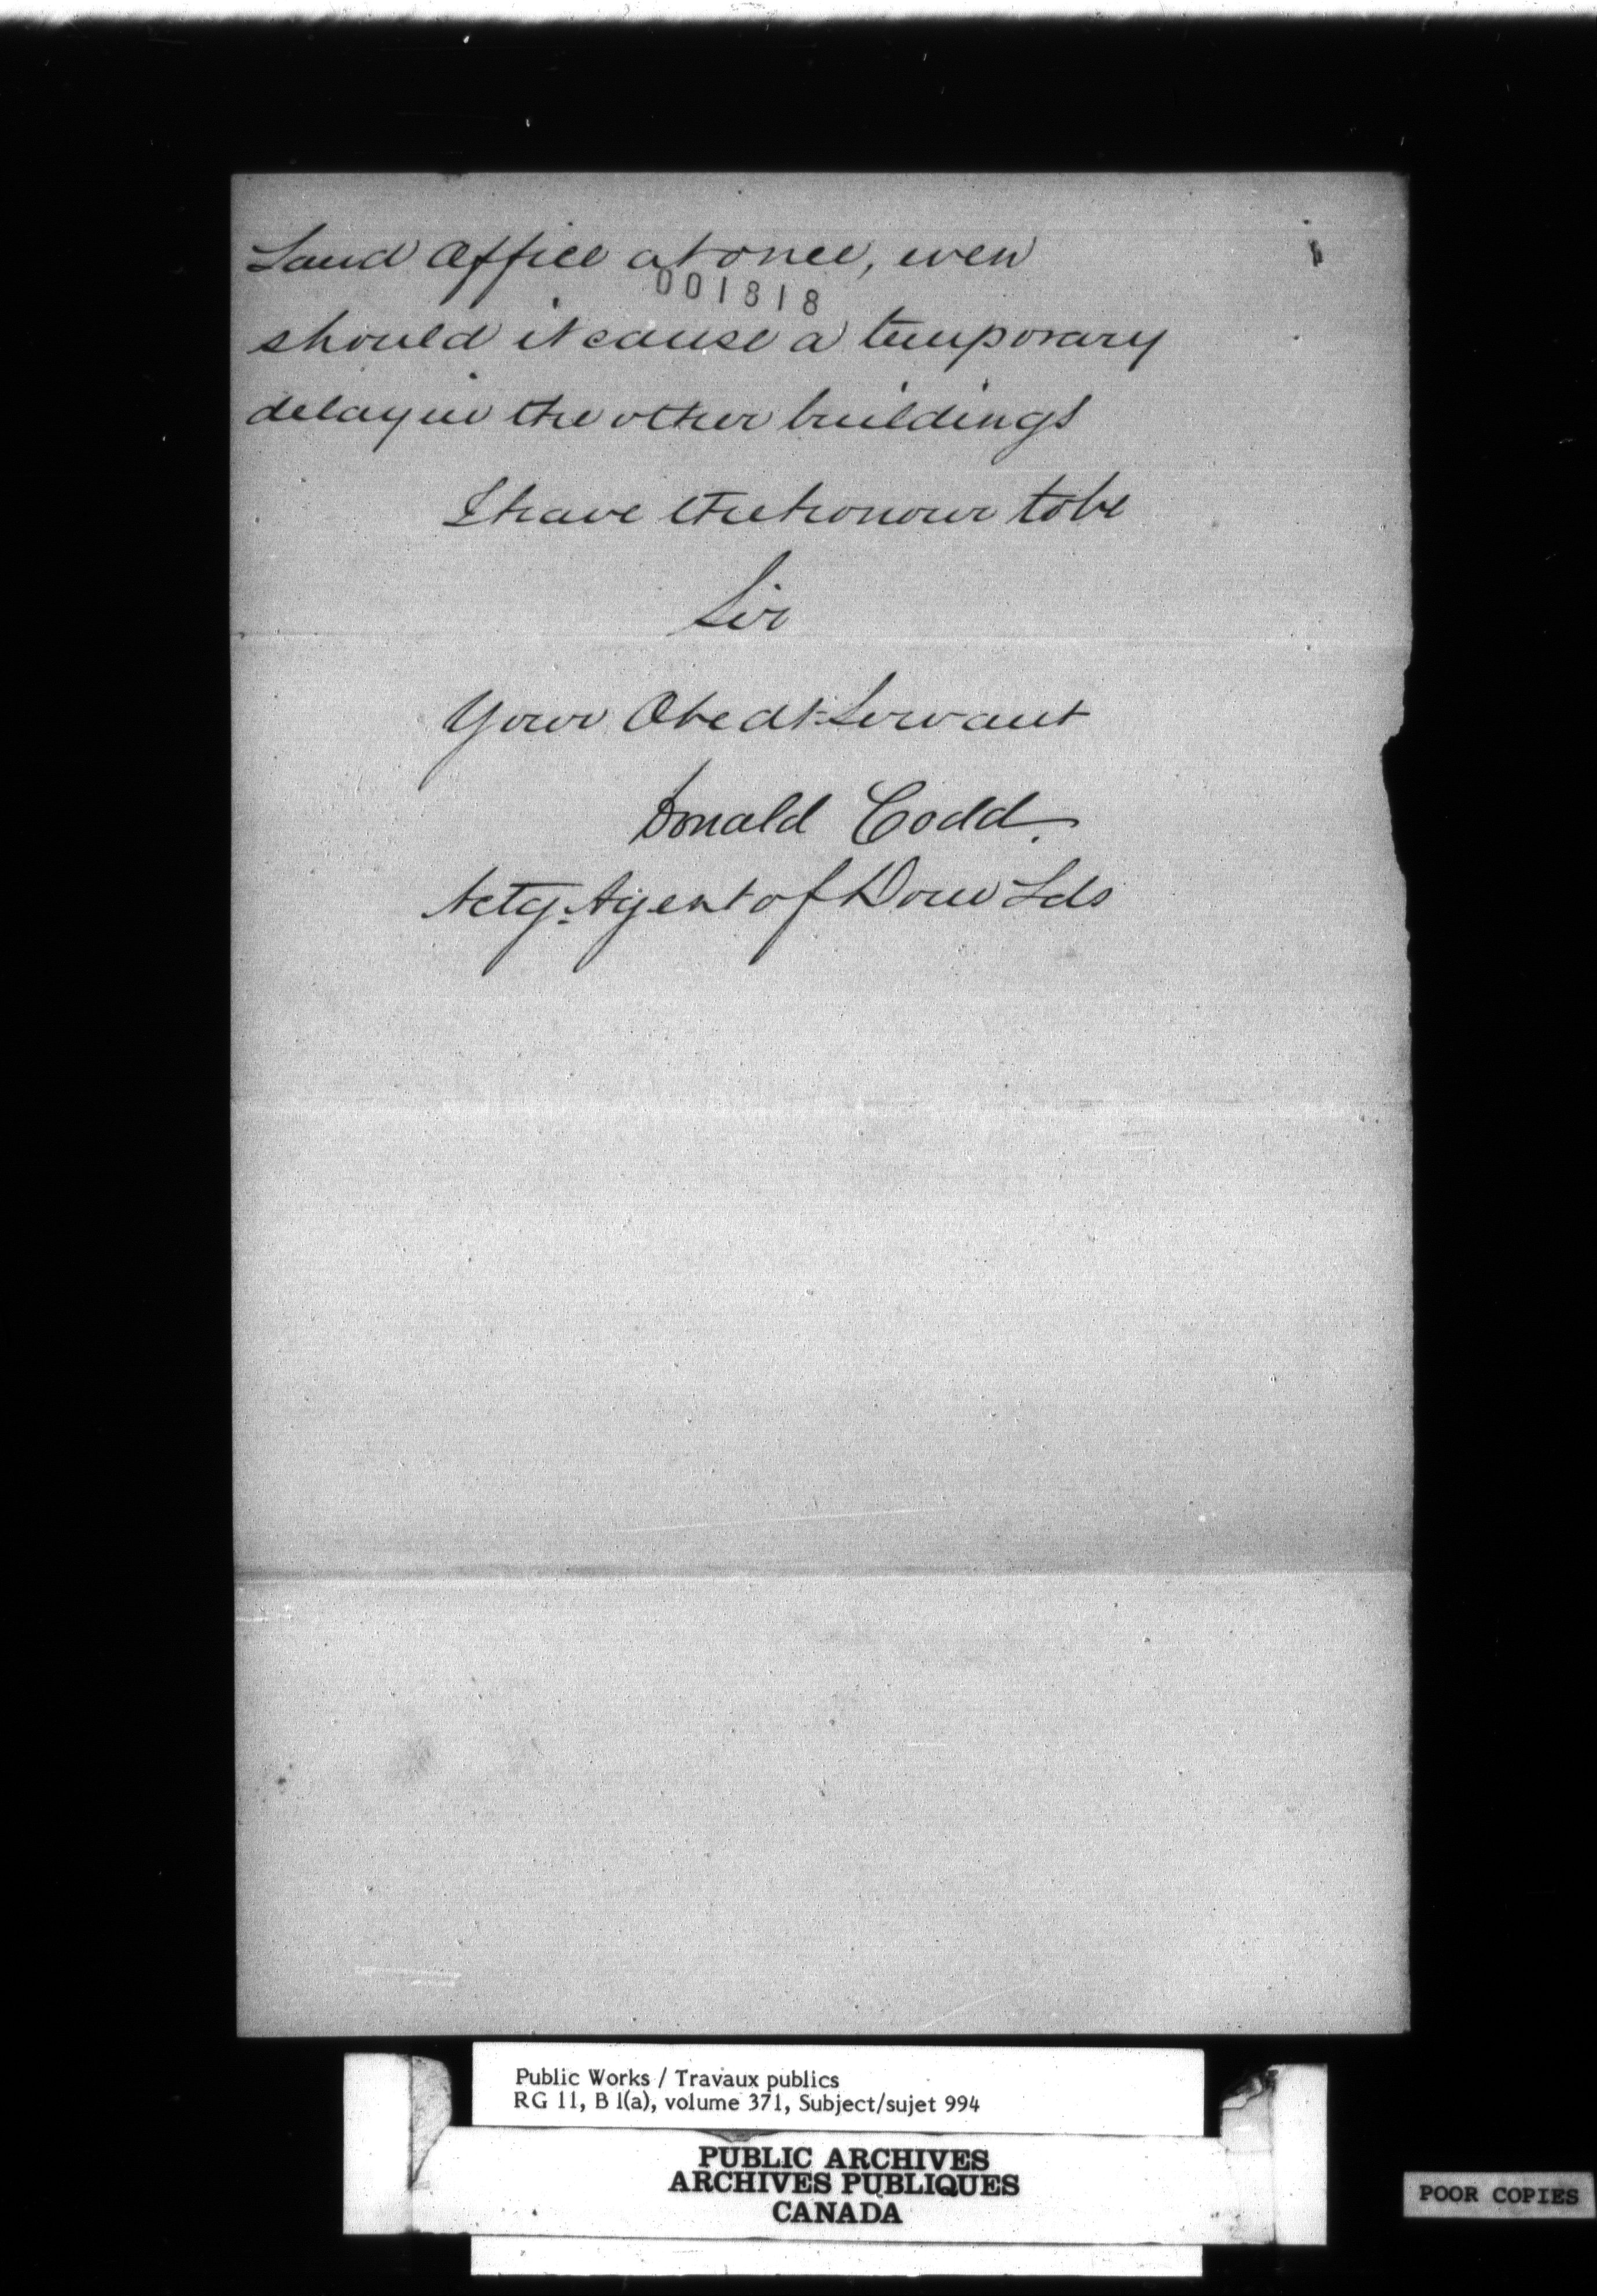 Land Office at once, even
001818
should it cause a temporary
delay in the other buildings
I have the honour to be
Sir
Your Obedt Servant
Donald Codd.
Actg. Agent of Dom Lds
Public Works / Travaux publics
RG 11, B 1(a), volume 371, Subject/sujet 994
PUBLIC ARCHIVES
ARCHIVES PUBLIQUES
CANADA
POOR COPIES